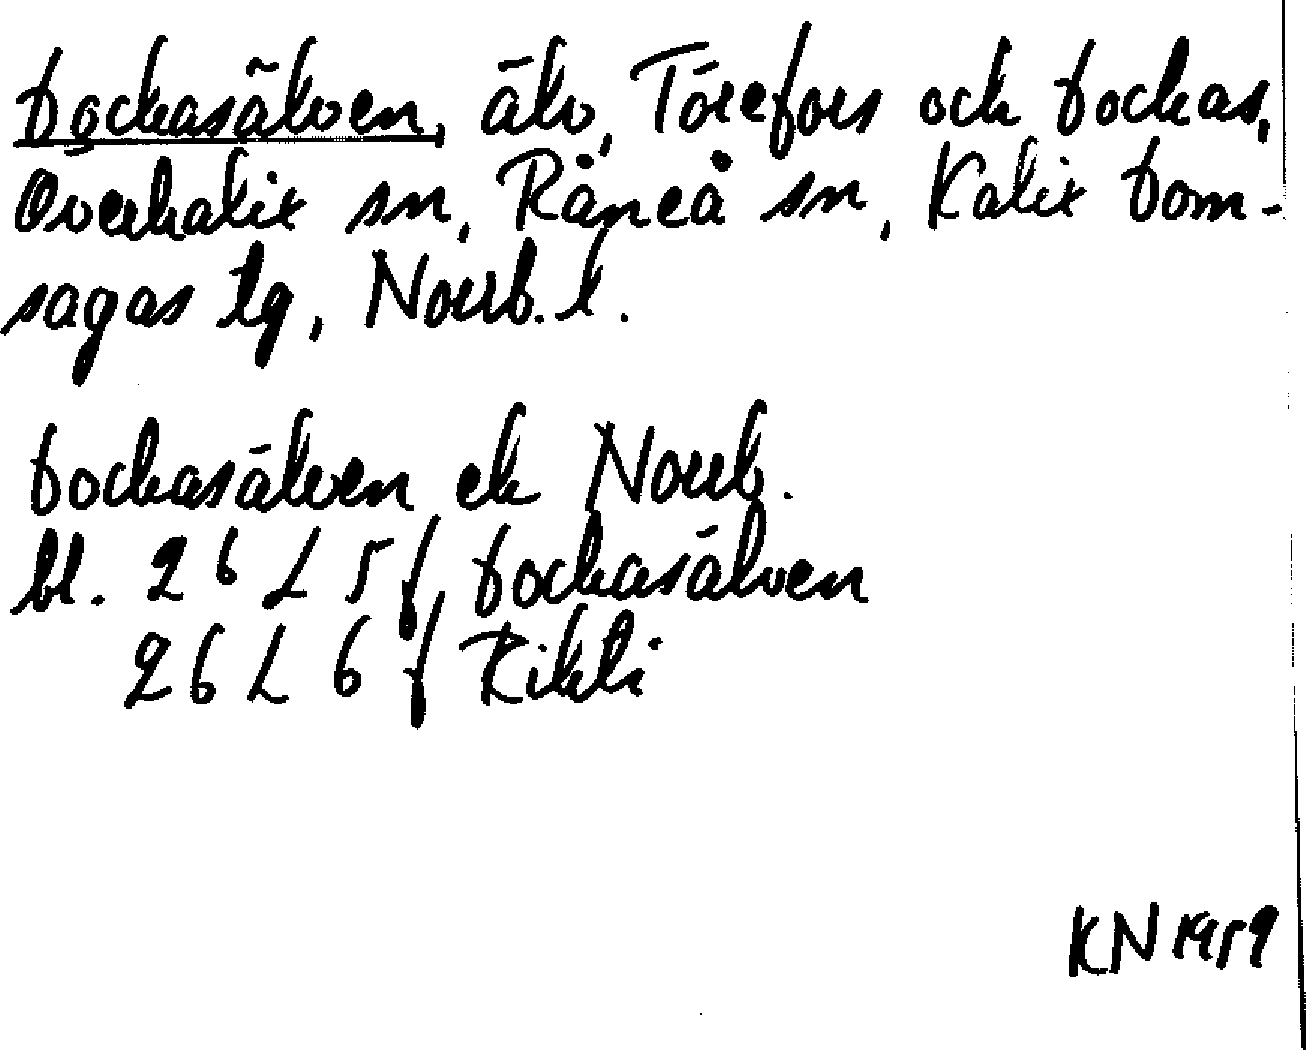 Dockasälven, älv, Törefors och Dockas,
Överkalix sn, Råneå sn, Kalix Dom-
sagas tg, Norrb. l.
Dockasälven ek Norrb.
bl. 26 L 5 f Dockasälven
26 L 6 f Rikti
KN 1959